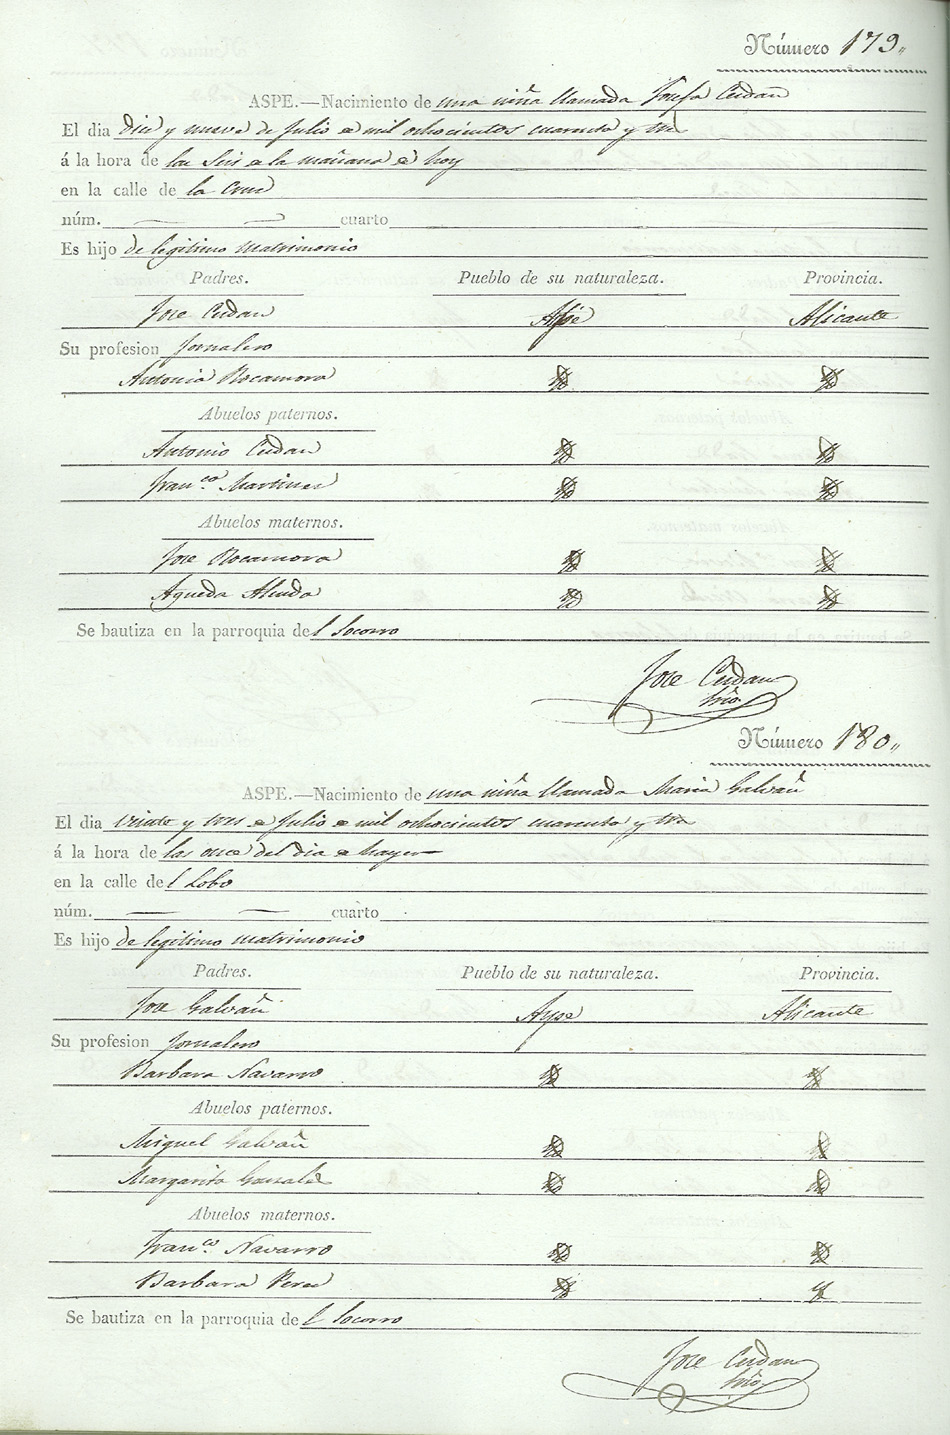 Número 179,,
ASPE.—Nacimiento de una niña llamada Josefa Cerdan
El dia diez y nueve de Julio de mil ochocientos cuarenta y tres
á la hora de las seis de la mañana de hoy
en la calle de la Cruz
núm. cuarto
Es hijo de legitimo matrimonio
Padres. Pueblo de su naturaleza. Provincia.
Jose Cerdan Aspe Alicante
Su profesion Jornalero
Antonia Rocamora
Abuelos paternos.
Antonio Cerdan
Franco. Martinez
Abuelos maternos.
Jose Rocamora
Agueda
Se bautiza en la parroquia del Socorro
Jose Cerdan
Número 180,,
ASPE.—Nacimiento de una niña llamada Maria Galvañ
El dia veinte y tres de Julio de mil ochocientos cuarenta y tres
á la hora de las once del dia de hayer
en la calle del Lobo
núm. cuarto
Es hijo de legitimo matrimonio
Padres. Pueblo de su naturaleza. Provincia.
Jose Galvañ Aspe Alicante
Su profesion Jornalero
Barbara Navarro
Abuelos paternos.
Miguel Galvañ
Margarita Gonzalez
Abuelos maternos.
Franco. Navarro
Barbara Perez
Se bautiza en la parroquia del Socorro
Jose Cerdan